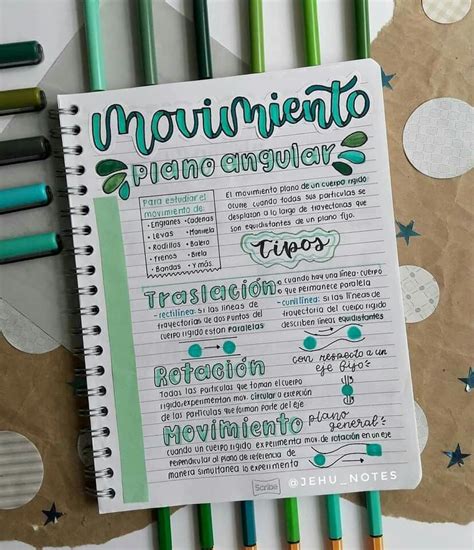 Movimiento
plano angular
Para estudiar el
movimiento de:
• Engranes • Cadenas
• Levas • Manivela
• Rodillos • Balero
• Frenos • Brelo
• Bandas • Y más.
El movimiento plano de un cuerpo rígido
ocurre cuando todas sus partículas se
desplazan a lo largo de trayectorias que
son equidistantes de un plano fijo.
Tipos
Traslación
→ cuando hay una línea · cuerpo
que permanece paralela
· rectilínea: si las líneas de
trayectorias de dos puntos del
cuerpo rígido están paralelas
· cunilínea: si las líneas de
trayectoria del cuerpo rígido
describen líneas equidistantes
Rotación
con respecto a un
eje fijo
Todas las partículas que toman el cuerpo
rígido, experimentan mov. circular a excepción
de las partículas que forman parte del eje
Movimiento
plano
general
cuando un cuerpo rígido experimenta mov. de rotación en un eje
perpendicular al plano de referencia de
manera simultánea lo experimenta
Scribe
@JEHU_NOTES